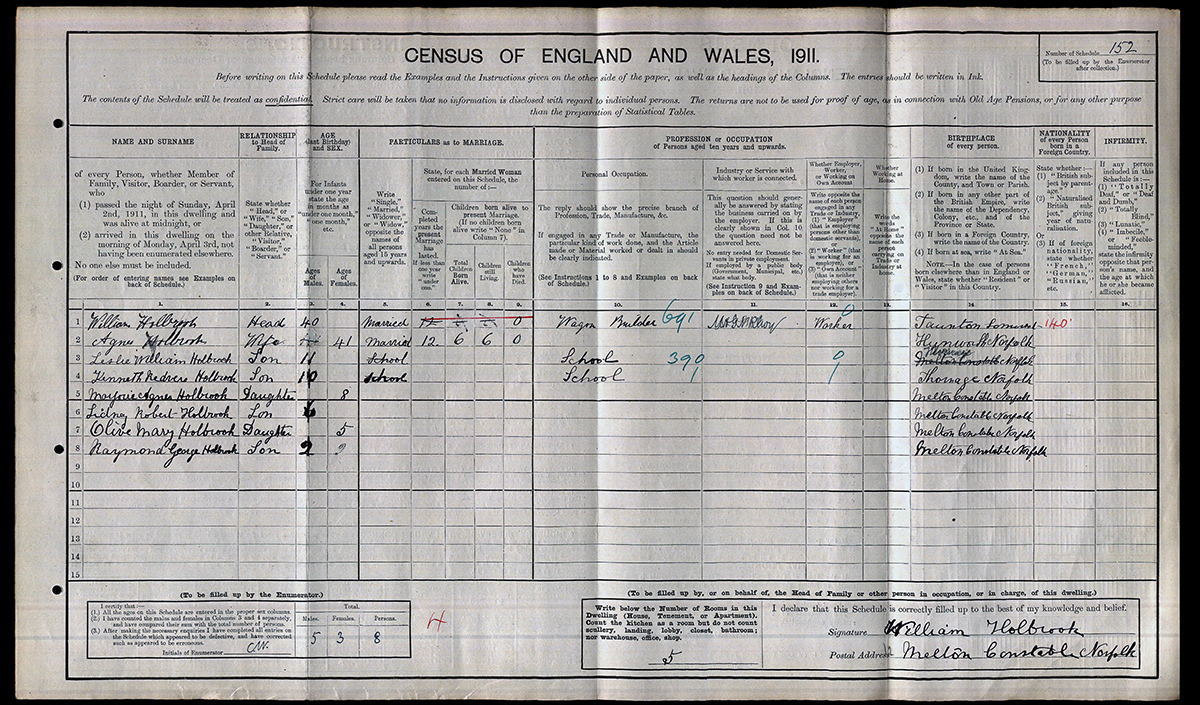 CENSUS OF ENGLAND AND WALES, 1911.
Number of Schedule 152
(To be filled up by the Enumerator after collection.)
Before writing on this Schedule please read the Examples and the Instructions given on the other side of the paper, as well as the headings of the Columns. The entries should be written in Ink.
The contents of the Schedule will be treated as confidential. Strict care will be taken that no information is disclosed with regard to individual persons. The returns are not to be used for proof of age, as in connection with Old Age Pensions, or for any other purpose
than the preparation of Statistical Tables.
NAME AND SURNAME
RELATIONSHIP to Head of Family.
AGE (last Birthday) and SEX.
PARTICULARS as to MARRIAGE.
PROFESSION or OCCUPATION
of Persons aged ten years and upwards.
BIRTHPLACE of every person.
NATIONALITY of every Person born in a Foreign Country.
INFIRMITY.
of every Person, whether Member of Family, Visitor, Boarder, or Servant, who
(1) passed the night of Sunday, April 2nd, 1911, in this dwelling and was alive at midnight, or
(2) arrived in this dwelling on the morning of Monday, April 3rd, not having been enumerated elsewhere.
No one else must be included.
(For order of entering names see Examples on back of Schedule.)
State whether "Head," or "Wife," "Son," "Daughter," or other Relative, "Visitor," "Boarder," or "Servant."
For Infants under one year state the age in months as "under one month," "one month," etc.
Ages of Males.
Ages of Females.
Write "Single," "Married," "Widower," or "Widow," opposite the names of all persons aged 15 years and upwards.
State, for each Married Woman entered on this Schedule, the number of:—
Completed years the present Marriage has lasted. If less than one year write "under one."
Children born alive to present Marriage. (If no children born alive write "None" in Column 7).
Total Children Born Alive.
Children still Living.
Children who have Died.
Personal Occupation.
The reply should show the precise branch of Profession, Trade, Manufacture, &c.
If engaged in any Trade or Manufacture, the particular kind of work done, and the Article made or Material worked or dealt in should be clearly indicated.
(See Instructions 1 to 8 and Examples on back of Schedule.)
Industry or Service with which worker is connected.
This question should generally be answered by stating the business carried on by the employer. If this is clearly shown in Col. 10 the question need not be answered here.
No entry needed for Domestic Servants in private employment. If employed by a public body (Government, Municipal, etc.) state what body.
(See Instruction 9 and Examples on back of Schedule.)
Whether Employer, Worker, or Working on Own Account
Write opposite the name of each person engaged in any Trade or Industry, (1) "Employer" (that is employing persons other than domestic servants), or (2) "Worker" (that is working for an employer), or (3) "Own Account" (that is neither employing others nor working for a trade employer).
Whether Working at Home.
Write the words "At Home" opposite the name of each person carrying on Trade or Industry at home.
(1) If born in the United Kingdom, write the name of the County, and Town or Parish.
(2) If born in any other part of the British Empire, write the name of the Dependency, Colony, etc., and of the Province or State.
(3) If born in a Foreign Country, write the name of the Country.
(4) If born at sea, write "At Sea."
NOTE.—In the case of persons born elsewhere than in England or Wales, state whether "Resident" or "Visitor" in this Country.
State whether:—
(1) "British subject by parentage,"
(2) "Naturalised British subject," giving year of naturalisation.
Or
(3) If of foreign nationality, state whether "French," "German," "Russian," etc.
If any person included in this Schedule is:—
(1) "Totally Deaf," or "Deaf and Dumb,"
(2) "Totally Blind,"
(3) "Lunatic,"
(4) "Imbecile," or "Feeble-minded,"
state the infirmity opposite that person's name, and the age at which he or she became afflicted.
1. 2. 3. 4. 5. 6. 7. 8. 9. 10. 11. 12. 13. 14. 15. 16.
1 William Holbrook Head 40 Married 0 Wagon Builder 691 Worker 0 Taunton Somerset 140
2 Agnes Holbrook Wife 41 Married 12 6 6 0 Norfolk
3 Leslie William Holbrook Son 11 School School 390 0 Melton Constable Norfolk
4 Kenneth Redvers Holbrook Son 10 School School 1 1 Thornage Norfolk
5 Marjorie Agnes Holbrook Daughter 8 Melton Constable Norfolk
6 Sidney Robert Holbrook Son 6 Melton Constable Norfolk
7 Olive Mary Holbrook Daughter 5 Melton Constable Norfolk
8 Raymond George Holbrook Son 2 2 Melton Constable Norfolk
9
10
11
12
13
14
15
(To be filled up by the Enumerator.)
I certify that:—
(1.) All the ages on this Schedule are entered in the proper sex columns.
(2.) I have counted the males and females in Columns 3 and 4 separately, and have compared their sum with the total number of persons.
(3.) After making the necessary enquiries I have completed all entries on the Schedule which appeared to be defective, and have corrected such as appeared to be erroneous.
Initials of Enumerator C.W.
Total.
Males. Females. Persons.
5 3 8
4
(To be filled up by, or on behalf of, the Head of Family or other person in occupation, or in charge, of this dwelling.)
Write below the Number of Rooms in this Dwelling (House, Tenement, or Apartment). Count the kitchen as a room but do not count scullery, landing, lobby, closet, bathroom; nor warehouse, office, shop.
5
I declare that this Schedule is correctly filled up to the best of my knowledge and belief.
Signature William Holbrook
Postal Address Melton Constable Norfolk